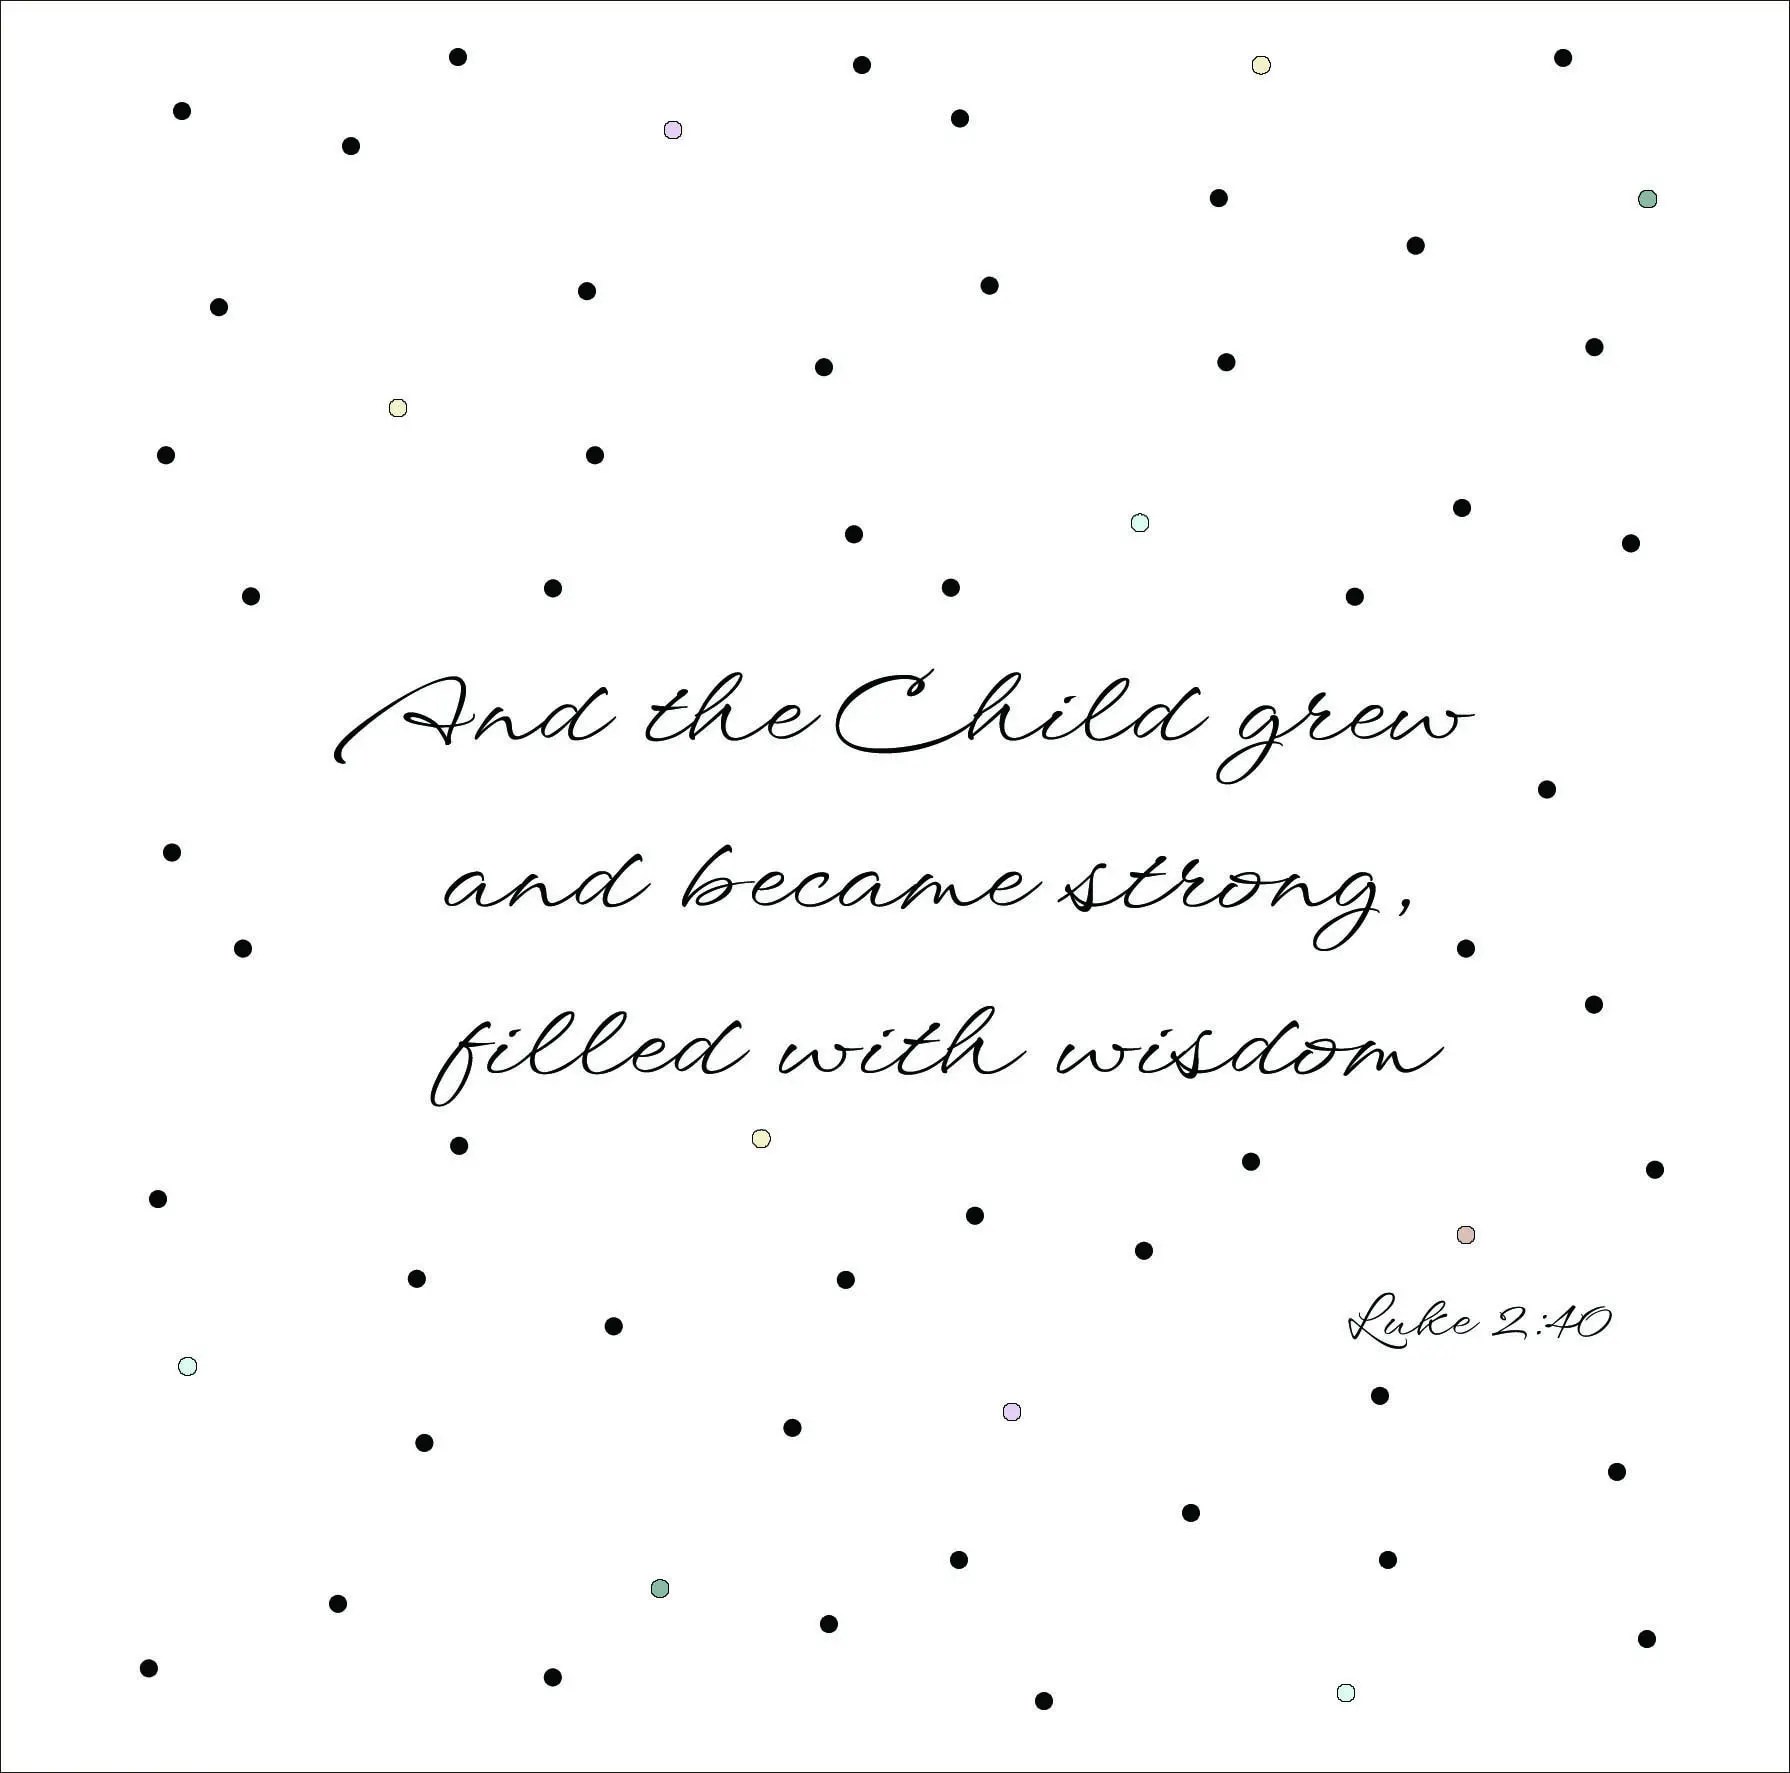 And the Child grew
and became strong,
filled with wisdom
Luke 2:40